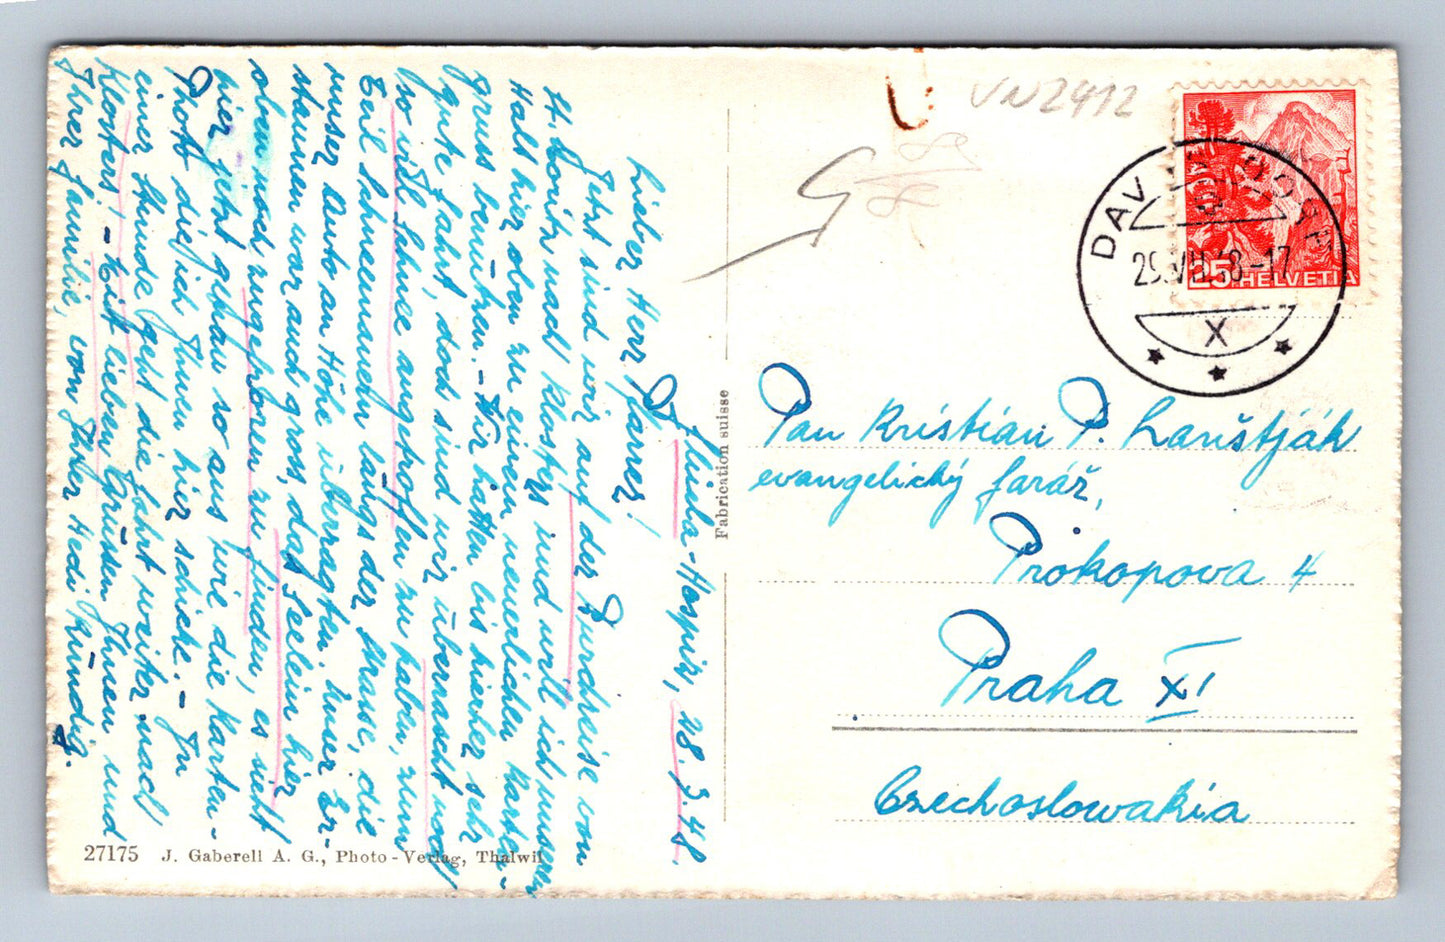 Flüela-Hospiz, 28.3.48.
Lieber Herr Pfarrer!
Jetzt sind wir auf der Durchreise von
St. Moritz nach Klosters und will ich unsern
Halt hier oben zu einem neuerlichen Karten-
gruss benützen. - Wir hatten bis hierher sehr
gute Fahrt, doch sind wir überrascht noch
so viel Schnee angetroffen zu haben, zum
Teil Schneemauern längs der Strasse, die
unser Auto an Höhe überragten. Unser Er-
staunen war auch gross, das Seelein hier
oben noch zugefroren zu finden, es sieht
hier jetzt genau so aus wie die Karten-
Photo die ich Ihnen hier schicke. - In
einer Stunde geht die Fahrt weiter nach
Klosters. - Mit lieben Grüssen Ihnen und
Ihrer Familie, von Ihrer Hedi Kündig.
27175 J. Gaberell A. G., Photo-Verlag, Thalwil
Fabrication suisse
VN2412
DAVOS DORF
29.VII.48-17
X
25 HELVETIA
Pan Kristian P. Lanštják
evangelický farář,
Prokopova 4
Praha XI
Czechoslowakia